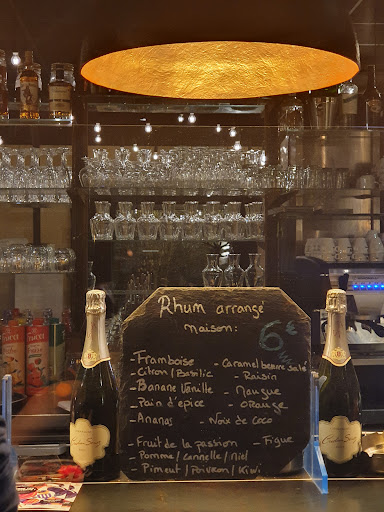 Rhum arrangé
maison:
6€
- Framboise - Caramel beurre salé
- Citron / Basilic - Raisin
- Banane Vanille - Mangue
- Pain d'épice - Orange
- Ananas - Noix de Coco
- Fruit de la passion - Figue
- Pomme / Cannelle / Miel
- Piment / Poivron / Kiwi